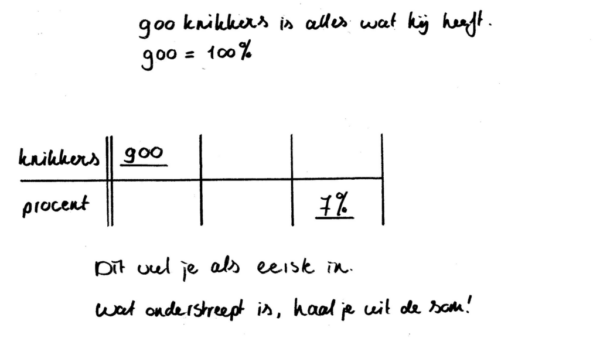 900 knikkers is alles wat hij heeft.
900 = 100%
knikkers 900
procent 7%
Dit vul je als eerste in.
wat onderstreept is, haal je uit de som!